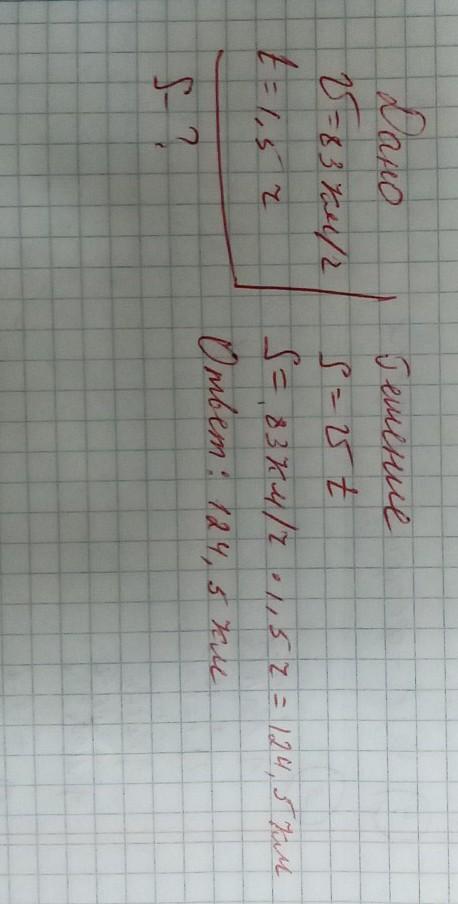 Дано
υ=83км/ч
t=1,5 ч
S-?
Решение
S=υt
S=83км/ч·1,5 ч=124,5км
Ответ: 124,5 км